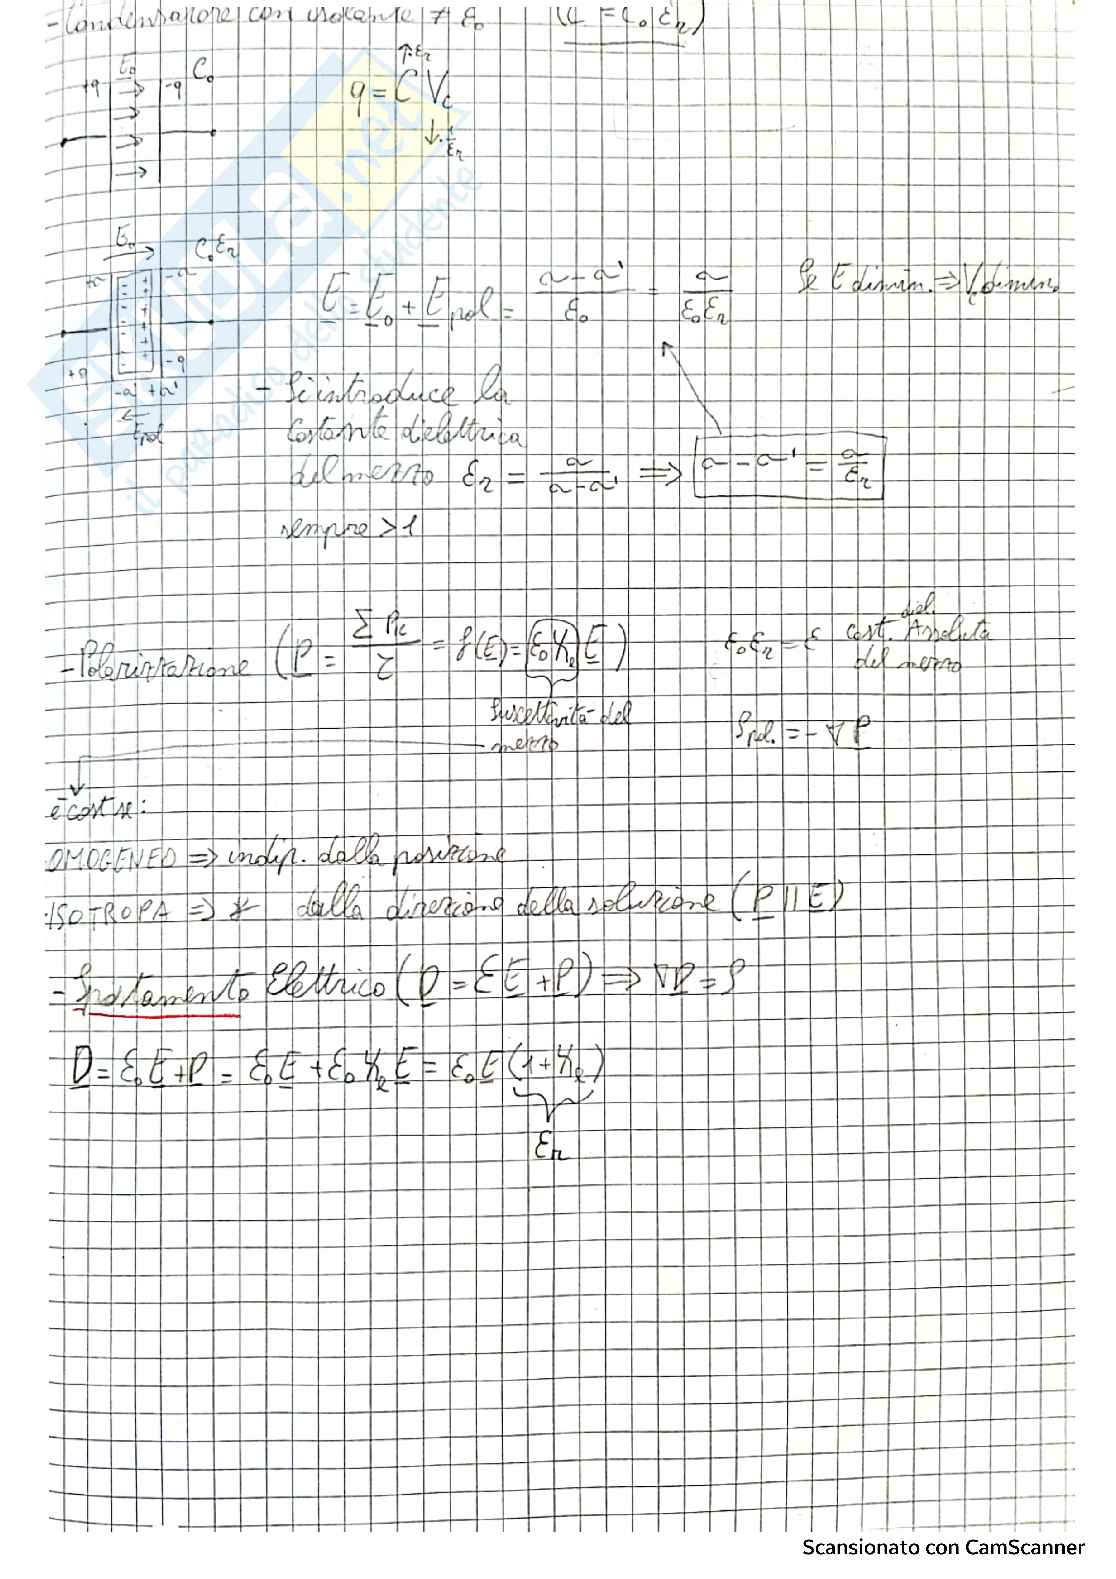 - Condensatore con isolante ≠ ε₀ (C = C₀ εr)
E₀ C₀ ↑·εr
+q -q q = C Vc
↓·1/εr
E₀ C₀εr
+σ -σ E = E₀ + E pol = σ-σ'/ε₀ = σ/ε₀εr Se E dimin. ⇒ Vc dimin.
+q -q
-σ' +σ' - Si introduce la
Epol costante dielettrica
del mezzo εr = σ/σ-σ' ⇒ σ-σ' = σ/εr
sempre >1
- Polarizzazione (P = Σ Pk/τ = f(E) = ε₀ χe E) ε₀εr = ε cost. diel. Assoluta
del mezzo
suscettività del
mezzo ρpol. = -∇P
è cost se:
OMOGENEO ⇒ indip. dalla posizione
ISOTROPA ⇒ * dalla direzione della soluzione (P || E)
- Spostamento Elettrico (D = εE + P) ⇒ ∇D = ρ
D = ε₀E + P = ε₀E + ε₀χeE = ε₀E(1+χe)
εr
il paradiso dello studente
Scansionato con CamScanner